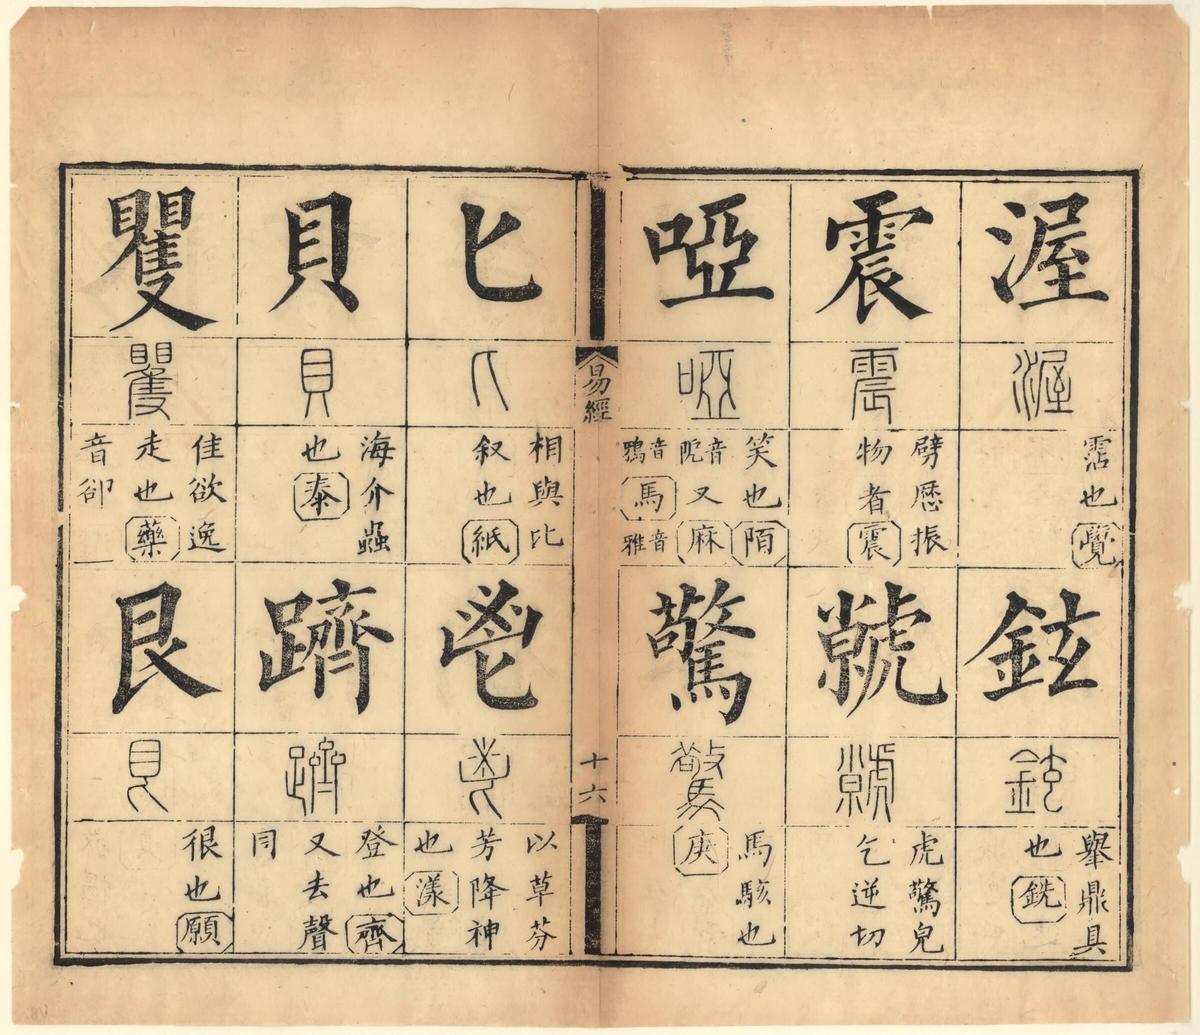 渥
渥
霑也覺
鉉
鉉
舉鼎具
也銑
震
震
劈歷振
物者震
虩
虩
虎驚皃
乞逆切
啞
啞
笑也陌
音阸又麻
音鴉馬音雅
驚
驚
馬駭也
庚
易經
十六
匕
匕
相與比
叙也紙
鬯
鬯
以草芬
芳降神
也漾
貝
貝
海介蟲
也泰
躋
躋
登也齊
又去聲
同
矍
矍
隹欲逸
走也藥
音卻
艮
艮
很也願